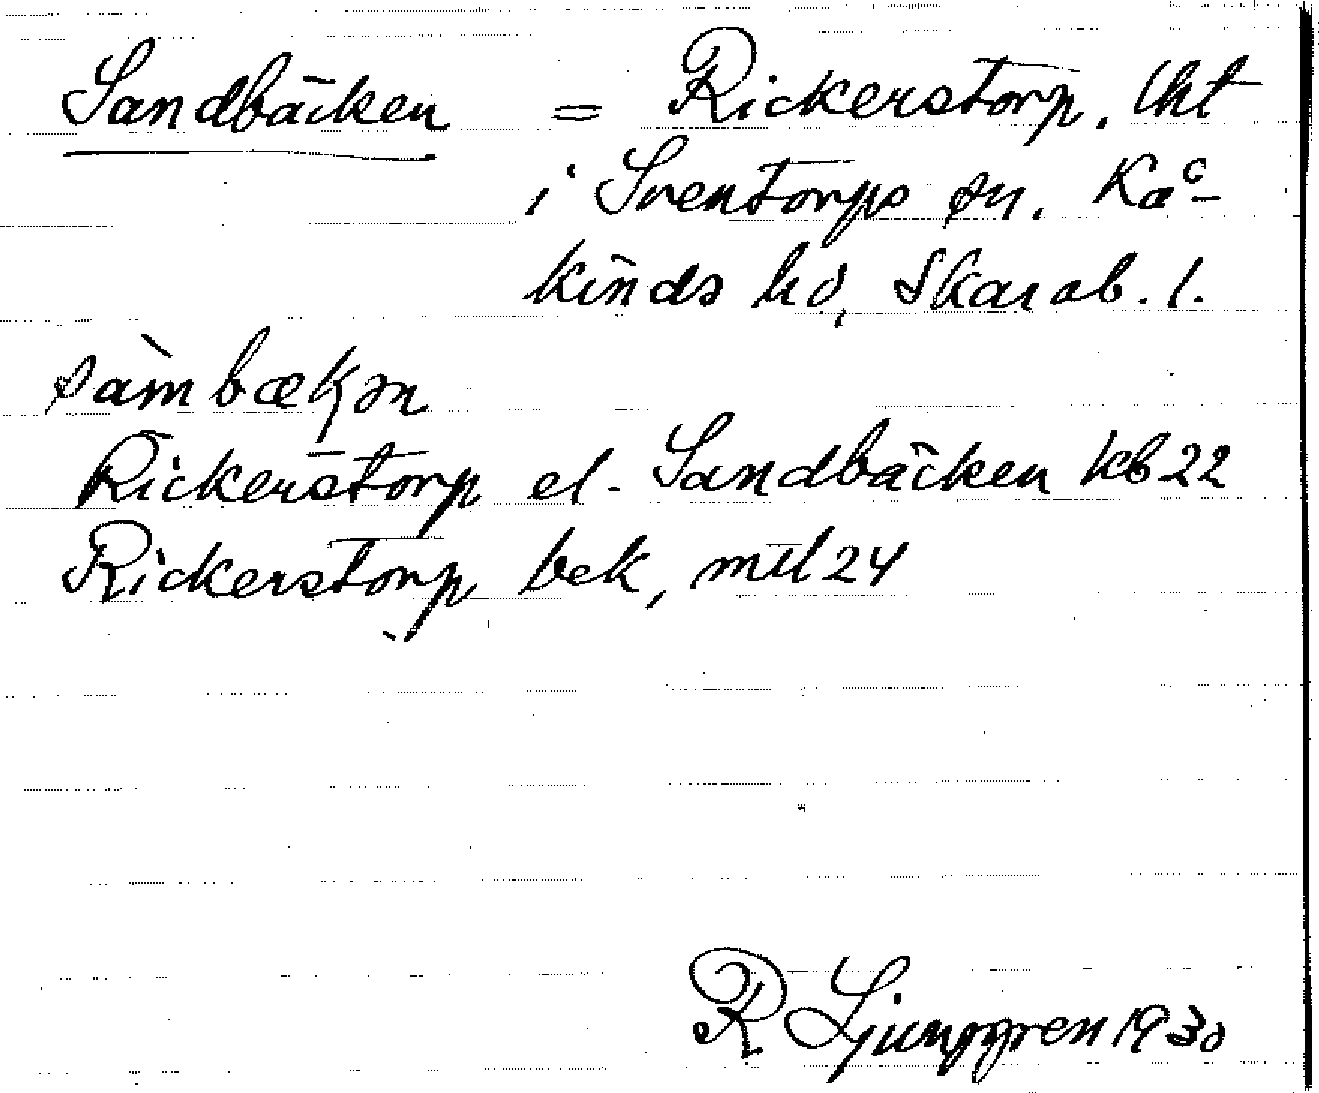 Sandbäcken = Rickerstorp, lht
i Sventorps sn. Kå-
kinds hd, Skarab. l.
sàmbækən
Rickerstorp el. Sandbäcken kb 22
Rickerstorp bek, mtl 24
R Ljunggren 1930